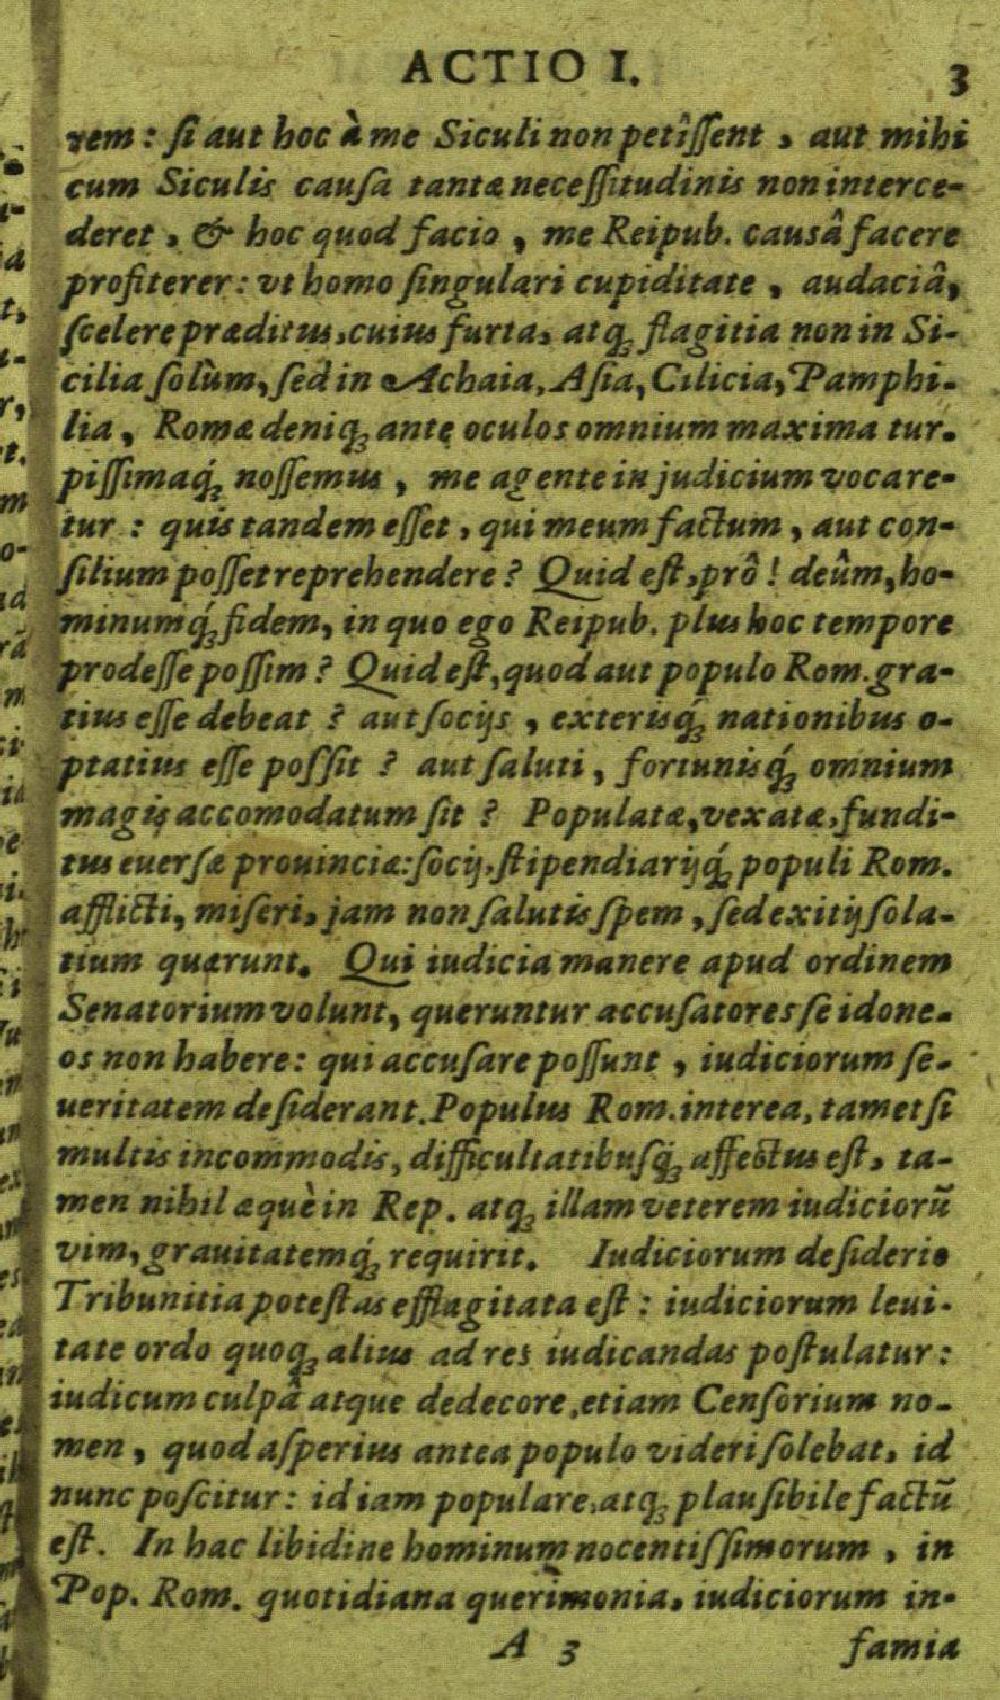 ACTIO I. 3
rem: ſi aut hoc à me Siculi non petîſſent, aut mihi
cum Siculis cauſa tantæ neceſſitudinis non interce-
deret, & hoc quod facio, me Reipub. causâ facere
profiterer: vt homo ſingulari cupiditate, audaciâ,
ſcelere præditus, cuius furta, atq; flagitia non in Si-
cilia ſolùm, ſed in Achaia, Aſia, Cilicia, Pamphi-
lia, Romæ deniq; ante oculos omnium maxima tur-
piſſimaq́; noſſemus, me agente in judicium vocare-
tur: quis tandem eſſet, qui meum factum, aut con-
ſilium poſſet reprehendere? Quid eſt, prô! deûm, ho-
minumq́; fidem, in quo ego Reipub. plus hoc tempore
prodeſſe poſſim? Quid eſt, quod aut populo Rom. gra-
tius eſſe debeat? aut ſocijs, exterisq́; nationibus o-
ptatius eſſe poſſit? aut ſaluti, fortunisq́; omnium
magis accomodatum ſit? Populatæ, vexatæ, fundi-
tus euerſæ prouinciæ: ſocij, ſtipendiarijq́; populi Rom.
afflicti, miſeri, jam non ſalutis ſpem, ſed exitij ſola-
tium quærunt. Qui iudicia manere apud ordinem
Senatorium volunt, queruntur accuſatores ſe idone-
os non habere: qui accuſare poſſunt, iudiciorum ſe-
ueritatem deſiderant. Populus Rom. interea, tametſi
multis incommodis, difficultatibuſq́; affectus eſt, ta-
men nihil æquè in Rep. atq; illam veterem iudiciorū
vim, grauitatemq́; requirit. Iudiciorum deſiderio
Tribunitia poteſtas efflagitata eſt: iudiciorum leui-
tate ordo quoq; alius ad res iudicandas poſtulatur:
iudicum culpâ atque dedecore, etiam Cenſorium no-
men, quod aſperius antea populo videri ſolebat, id
nunc poſcitur: id iam populare, atq; plauſibile factū
eſt. In hac libidine hominum nocentiſſimorum, in
Pop. Rom. quotidiana querimonia, iudiciorum in-
A 3 famia